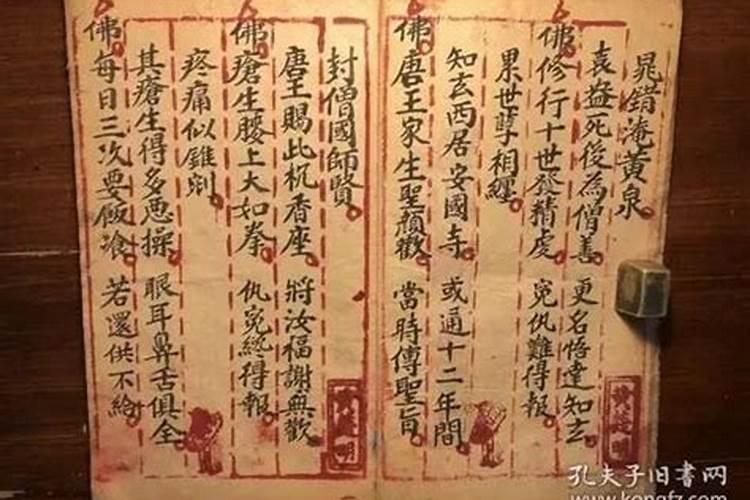 晁錯淹黄泉
袁盎死後為僧善 更名悟達知玄
佛修行十世發精虔 寃仇難得報
累世孽相纏
知玄西居安國寺 或通十二年間
佛唐王家生聖顏歡 當時傳聖旨
封僧國師賢
唐王賜此杌香座 將汝福謝無歡
佛瘡生腰上大如拳 仇寃終得報
疼痛似錐剜
其瘡生得多悪操 眼耳鼻舌俱全
佛每日三次要飯飡 若還供不給
孔夫子旧書网